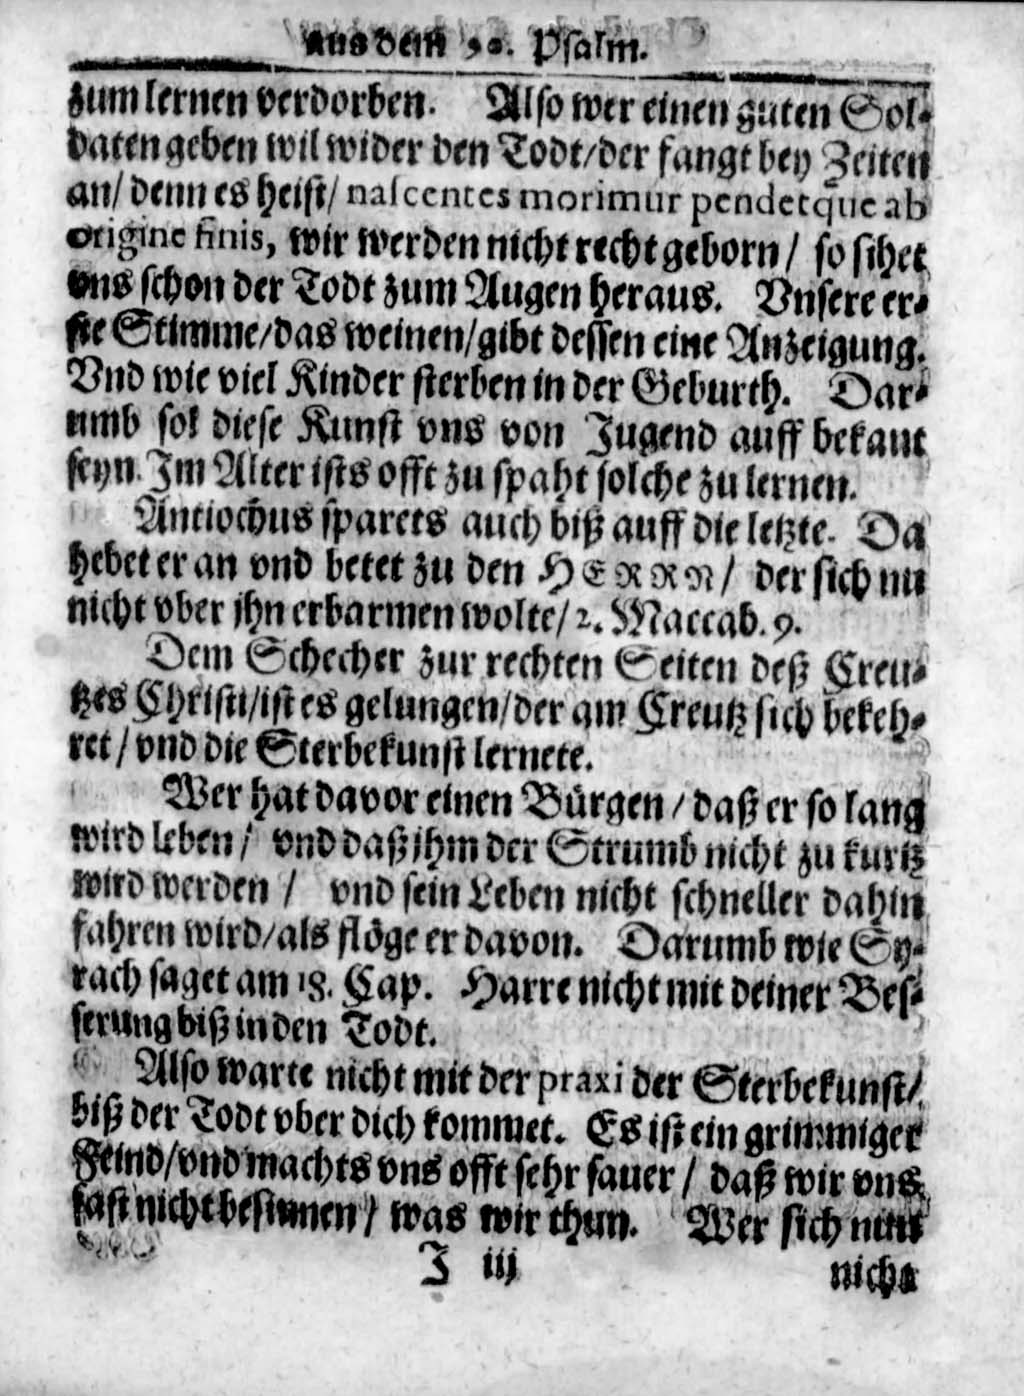 aus dem 90. Psalm.
zum lernen verdorben. Also wer einen guten Sol-
daten geben wil wider den Todt/der fangt bey Zeiten
an/ denn es heist/ nascentes morimur pendetque ab
origine finis, wir werden nicht recht geborn/ so sihet
vns schon der Todt zum Augen heraus. Vnsere er-
ste Stimme/das weinen/gibt dessen eine Anzeigung.
Vnd wie viel Kinder sterben in der Geburth. Dar-
umb sol diese Kunst vns von Jugend auff bekant
seyn. Im Alter ists offt zu spaht solche zu lernen.
Antiochus sparets auch biß auff die letzte. Da
hebet er an vnd betet zu den HERRN/ der sich nu
nicht vber jhn erbarmen wolte/ 2. Maccab. 9.
Dem Schecher zur rechten Seiten deß Creu-
tzes Christi/ist es gelungen/der am Creutz sich bekeh-
ret/ vnd die Sterbekunst lernete.
Wer hat davor einen Bürgen/ daß er so lang
wird leben/ vnd daß jhm der Strumb nicht zu kurtz
wird werden/ vnd sein Leben nicht schneller dahin
fahren wird/als flöge er davon. Darumb wie Sy-
rach saget am 18. Cap. Harre nicht mit deiner Bes-
serung biß in den Todt.
Also warte nicht mit der praxi der Sterbekunst/
biß der Todt vber dich kommet. Es ist ein grimmiger
Feind/vnd machts vns offt sehr sauer/ daß wir vns
fast nicht besinnen/ was wir thun. Wer sich nun
J iij
nicht